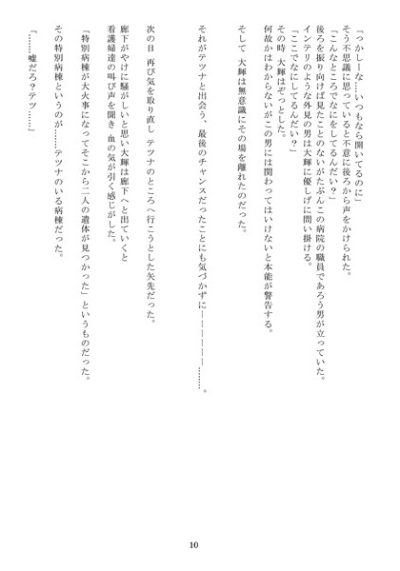 「っかしーな…いつもなら開いてるのに」
そう不思議に思っていると不意に後ろから声をかけられた。
「こんなところでなにをしてるんだい？」
後ろを振り向けば見たことのないがたぶんこの病院の職員であろう男が立っていた。
インテリのような外見の男は大輝に優しげに問い掛ける。
「ここでなにしてるんだい？」
その時　大輝はぞっとした。
何故かはわからないがこの男には関わってはいけないと本能が警告する。
そして　大輝は無意識にその場を離れたのだった。
それがテツナと出会う、最後のチャンスだったことにも気づかずに――――――………。
次の日　再び気を取り直し　テツナのところへ行こうとした矢先だった。
廊下がやけに騒がしいと思い大輝は廊下へと出ていくと
看護婦達の叫び声を聞き　血の気が引く感じがした。
「特別病棟が大火事になってそこから二人の遺体が見つかった」というものだった。
その特別病棟というのが……テツナのいる病棟だった。
『……嘘だろ？テツ……』
10